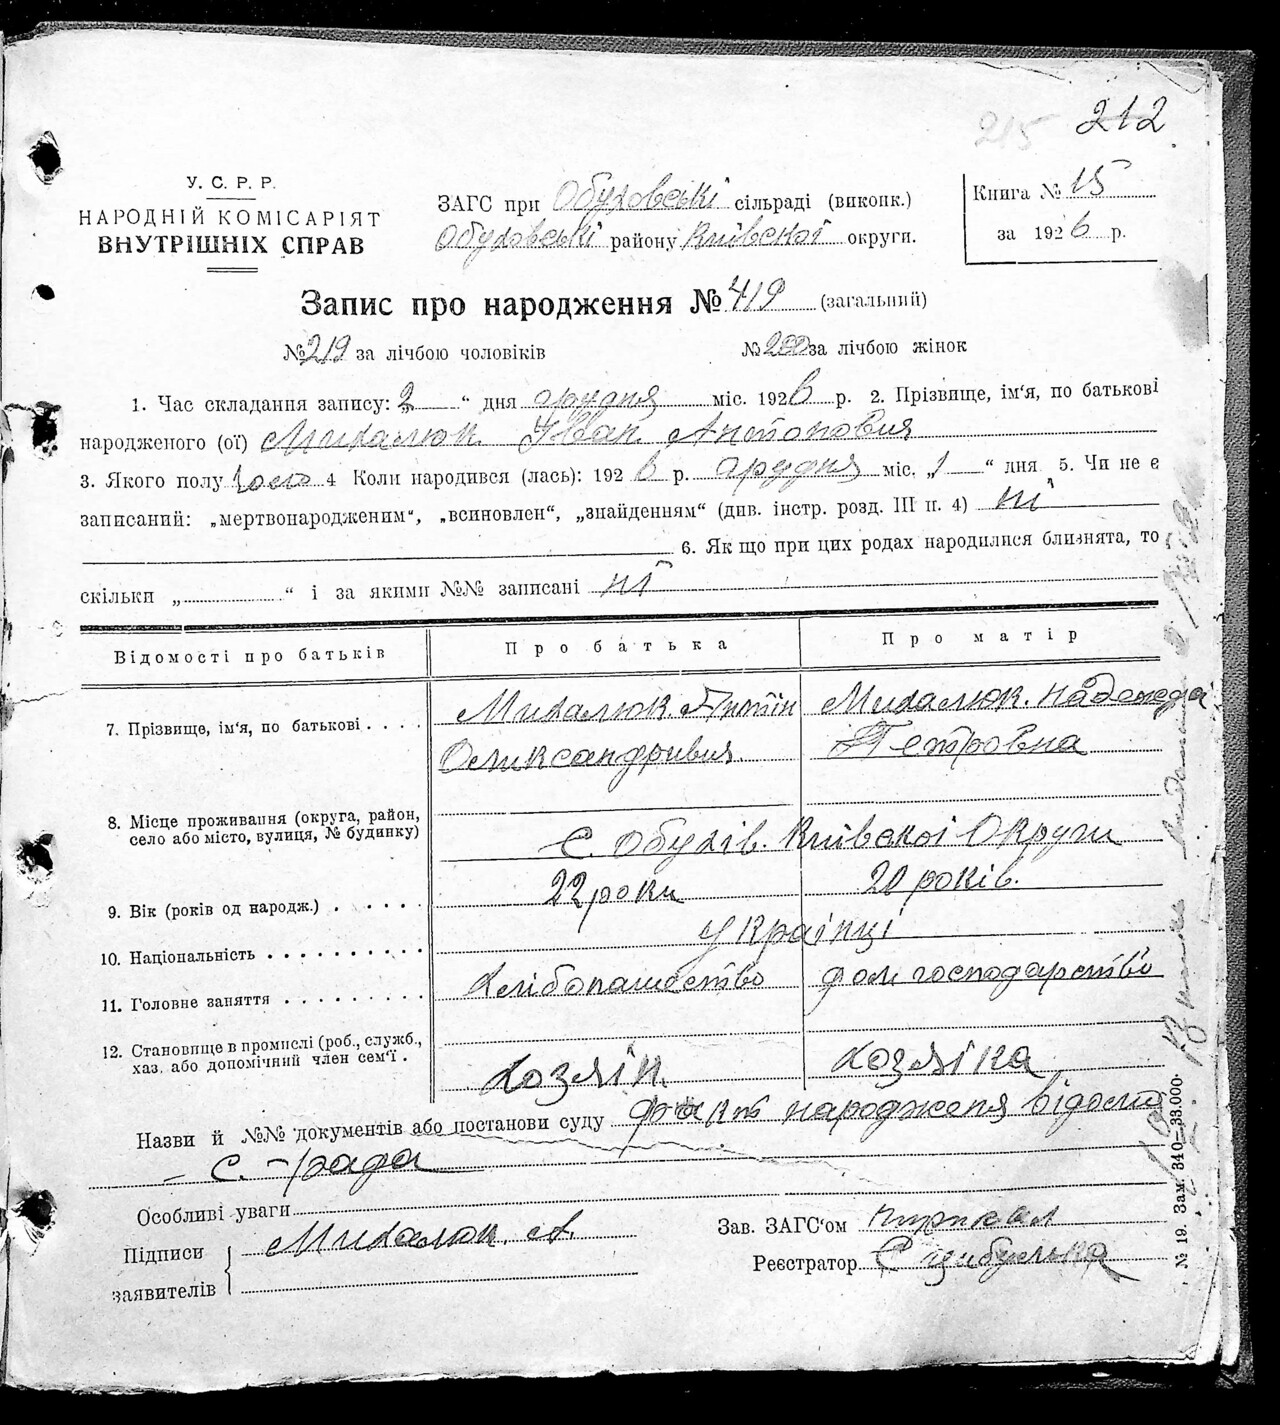 215 212
У. С. Р. Р.
НАРОДНІЙ КОМІСАРІЯТ
ВНУТРІШНІХ СПРАВ
ЗАГС при Обуховські сільраді (виконк.)
Обуховські району Київскої округи.
Книга № 15
за 1926 р.
Запис про народження № 419 (загальний)
№ 219 за лічбою чоловіків № 200 за лічбою жінок
1. Час складання запису: „2 “ дня грудня міс. 1926 р. 2. Прізвище, ім'я, по батькові
народженого (ої) Михалюк Іван Антонович
3. Якого полу чоло 4 Коли народився (лась): 1926 р. грудня міс. „1 “ дня 5. Чи не є
записаний: „мертвонародженим“, „всиновлен“, „знайденням“ (див. інстр. розд. III п. 4) ні
6. Як що при цих родах народилися близнята, то
скільки „ “ і за якими №№ записані ні
Відомості про батьків Про батька Про матір
7. Прізвище, ім'я, по батькові . . . . Михалюк Антін Михалюк Надежда
Олександрович Петровна
8. Місце проживання (округа, район,
село або місто, вулиця, № будинку) с. Обухів. Київскої Округи
9. Вік (років од народж.) . . . . . 22 роки 20 років.
10. Національність . . . . . . . . . українці
11. Головне заняття . . . . . . . . . хлібопашество дом господарство
12. Становище в промислі (роб., служб.,
хаз. або допомічний член сем'ї . хозяїн. хозяїка
Назви й №№ документів або постанови суду факт народженя відом
- с. -рада
Особливі уваги
Підписи
заявителів Михалюк. А.
Зав. ЗАГС'ом
Реєстратор С Цибулька
№ 19. Зам. 340—33.000.